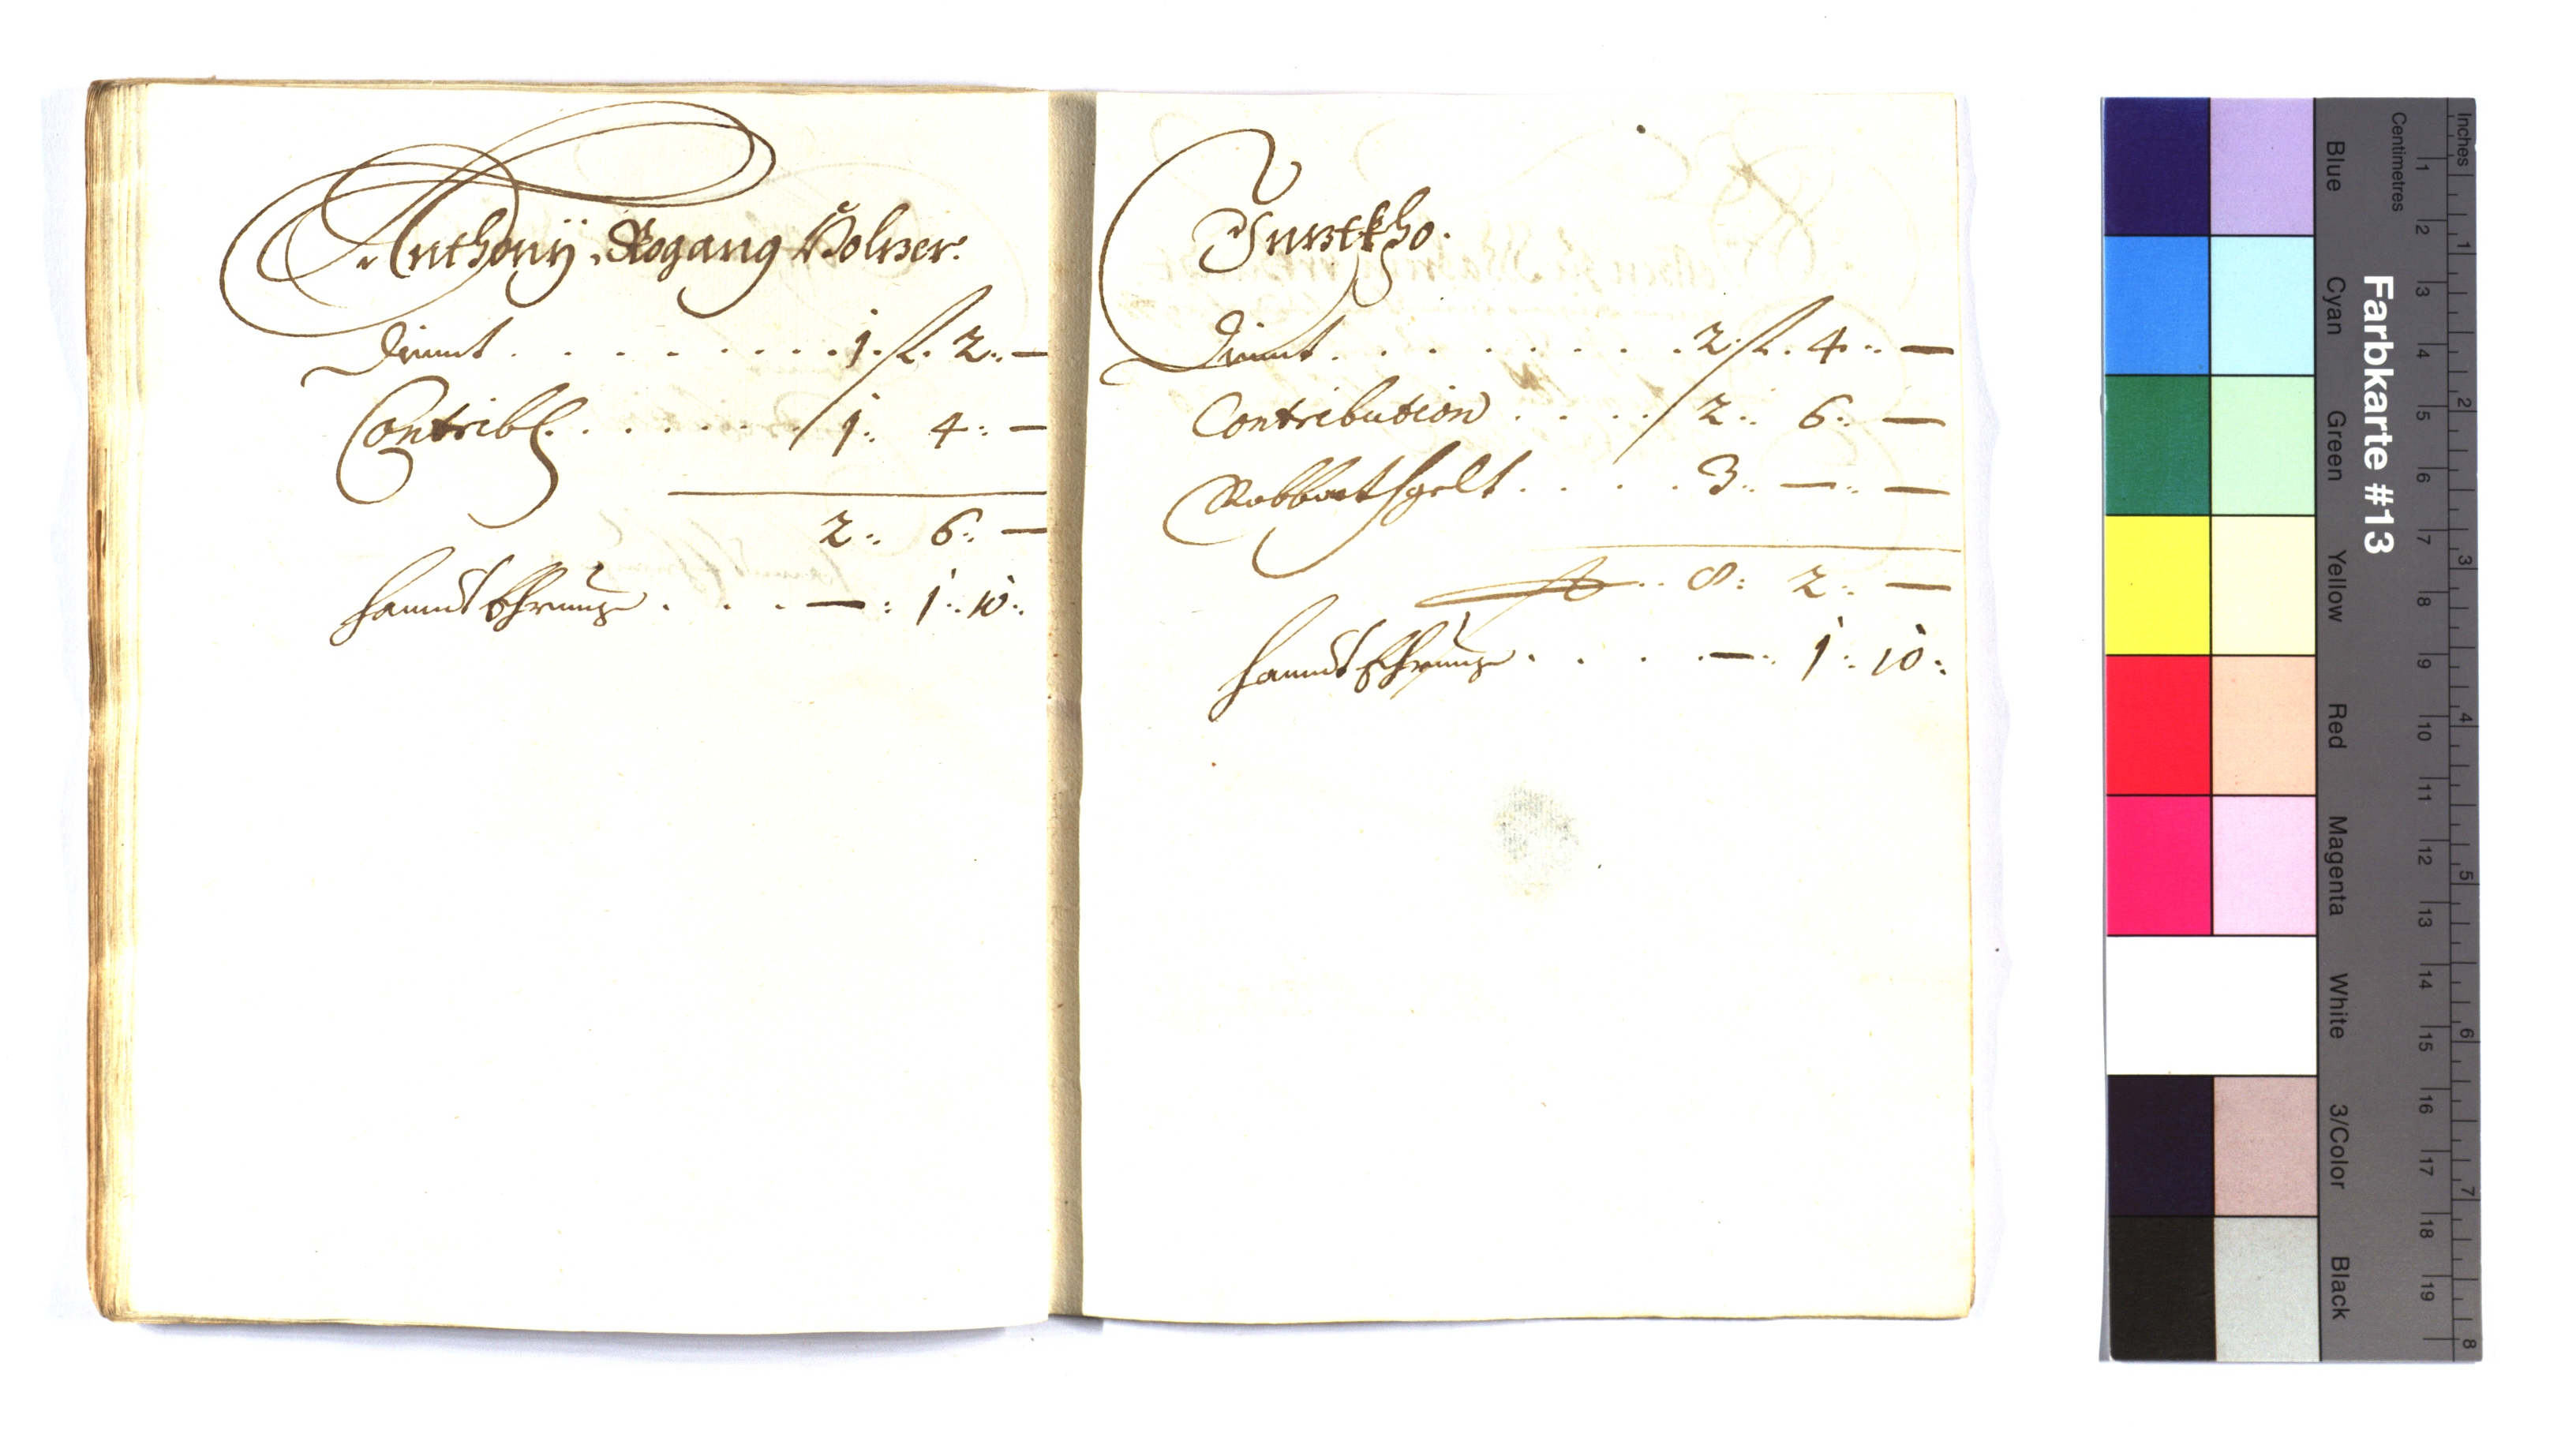 Anthony Rogang Volver.
Dinnst . . . . . . . . . 1. fl. 2.. —
Contribl. . . . . . . . 1.. 4.. —
2.. 6.. —
hannd Ehrung . . . . — : 1.. 10..
Dinnst . . . . . . . . 2. fl. 4.. —
Contribution . . . . 2.. 6.. —
Robbatsgelt . . . . 3.. —.. —
8: 2.. —
hannd Ehrung . . . . — : 1.. 10..
Farbkarte #13
Inches
Centimetres
Blue
Cyan
Green
Yellow
Red
Magenta
White
3/Color
Black
1
2
3
4
5
6
7
8
9
10
11
12
13
14
15
16
17
18
19
1
2
3
4
5
6
7
8